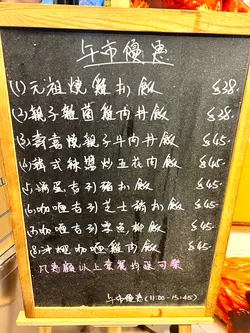 午市優惠
(1)元祖燒雞扒飯 $38.
(2)親子雜菌雞肉丼飯 $38.
(3)壽喜燒親子牛肉丼飯 $45.
(4)韓式辣醬炒五花肉飯 $45.
(5)滑蛋吉列豬扒飯 $45.
(6)咖喱吉列芝士豬扒飯 $45.
(7)咖喱吉列 飯 $45.
(8)汁燒咖喱雞肉飯 $45.
凡惠顧以上套餐均送可樂
午市優惠(11:00-15:45)